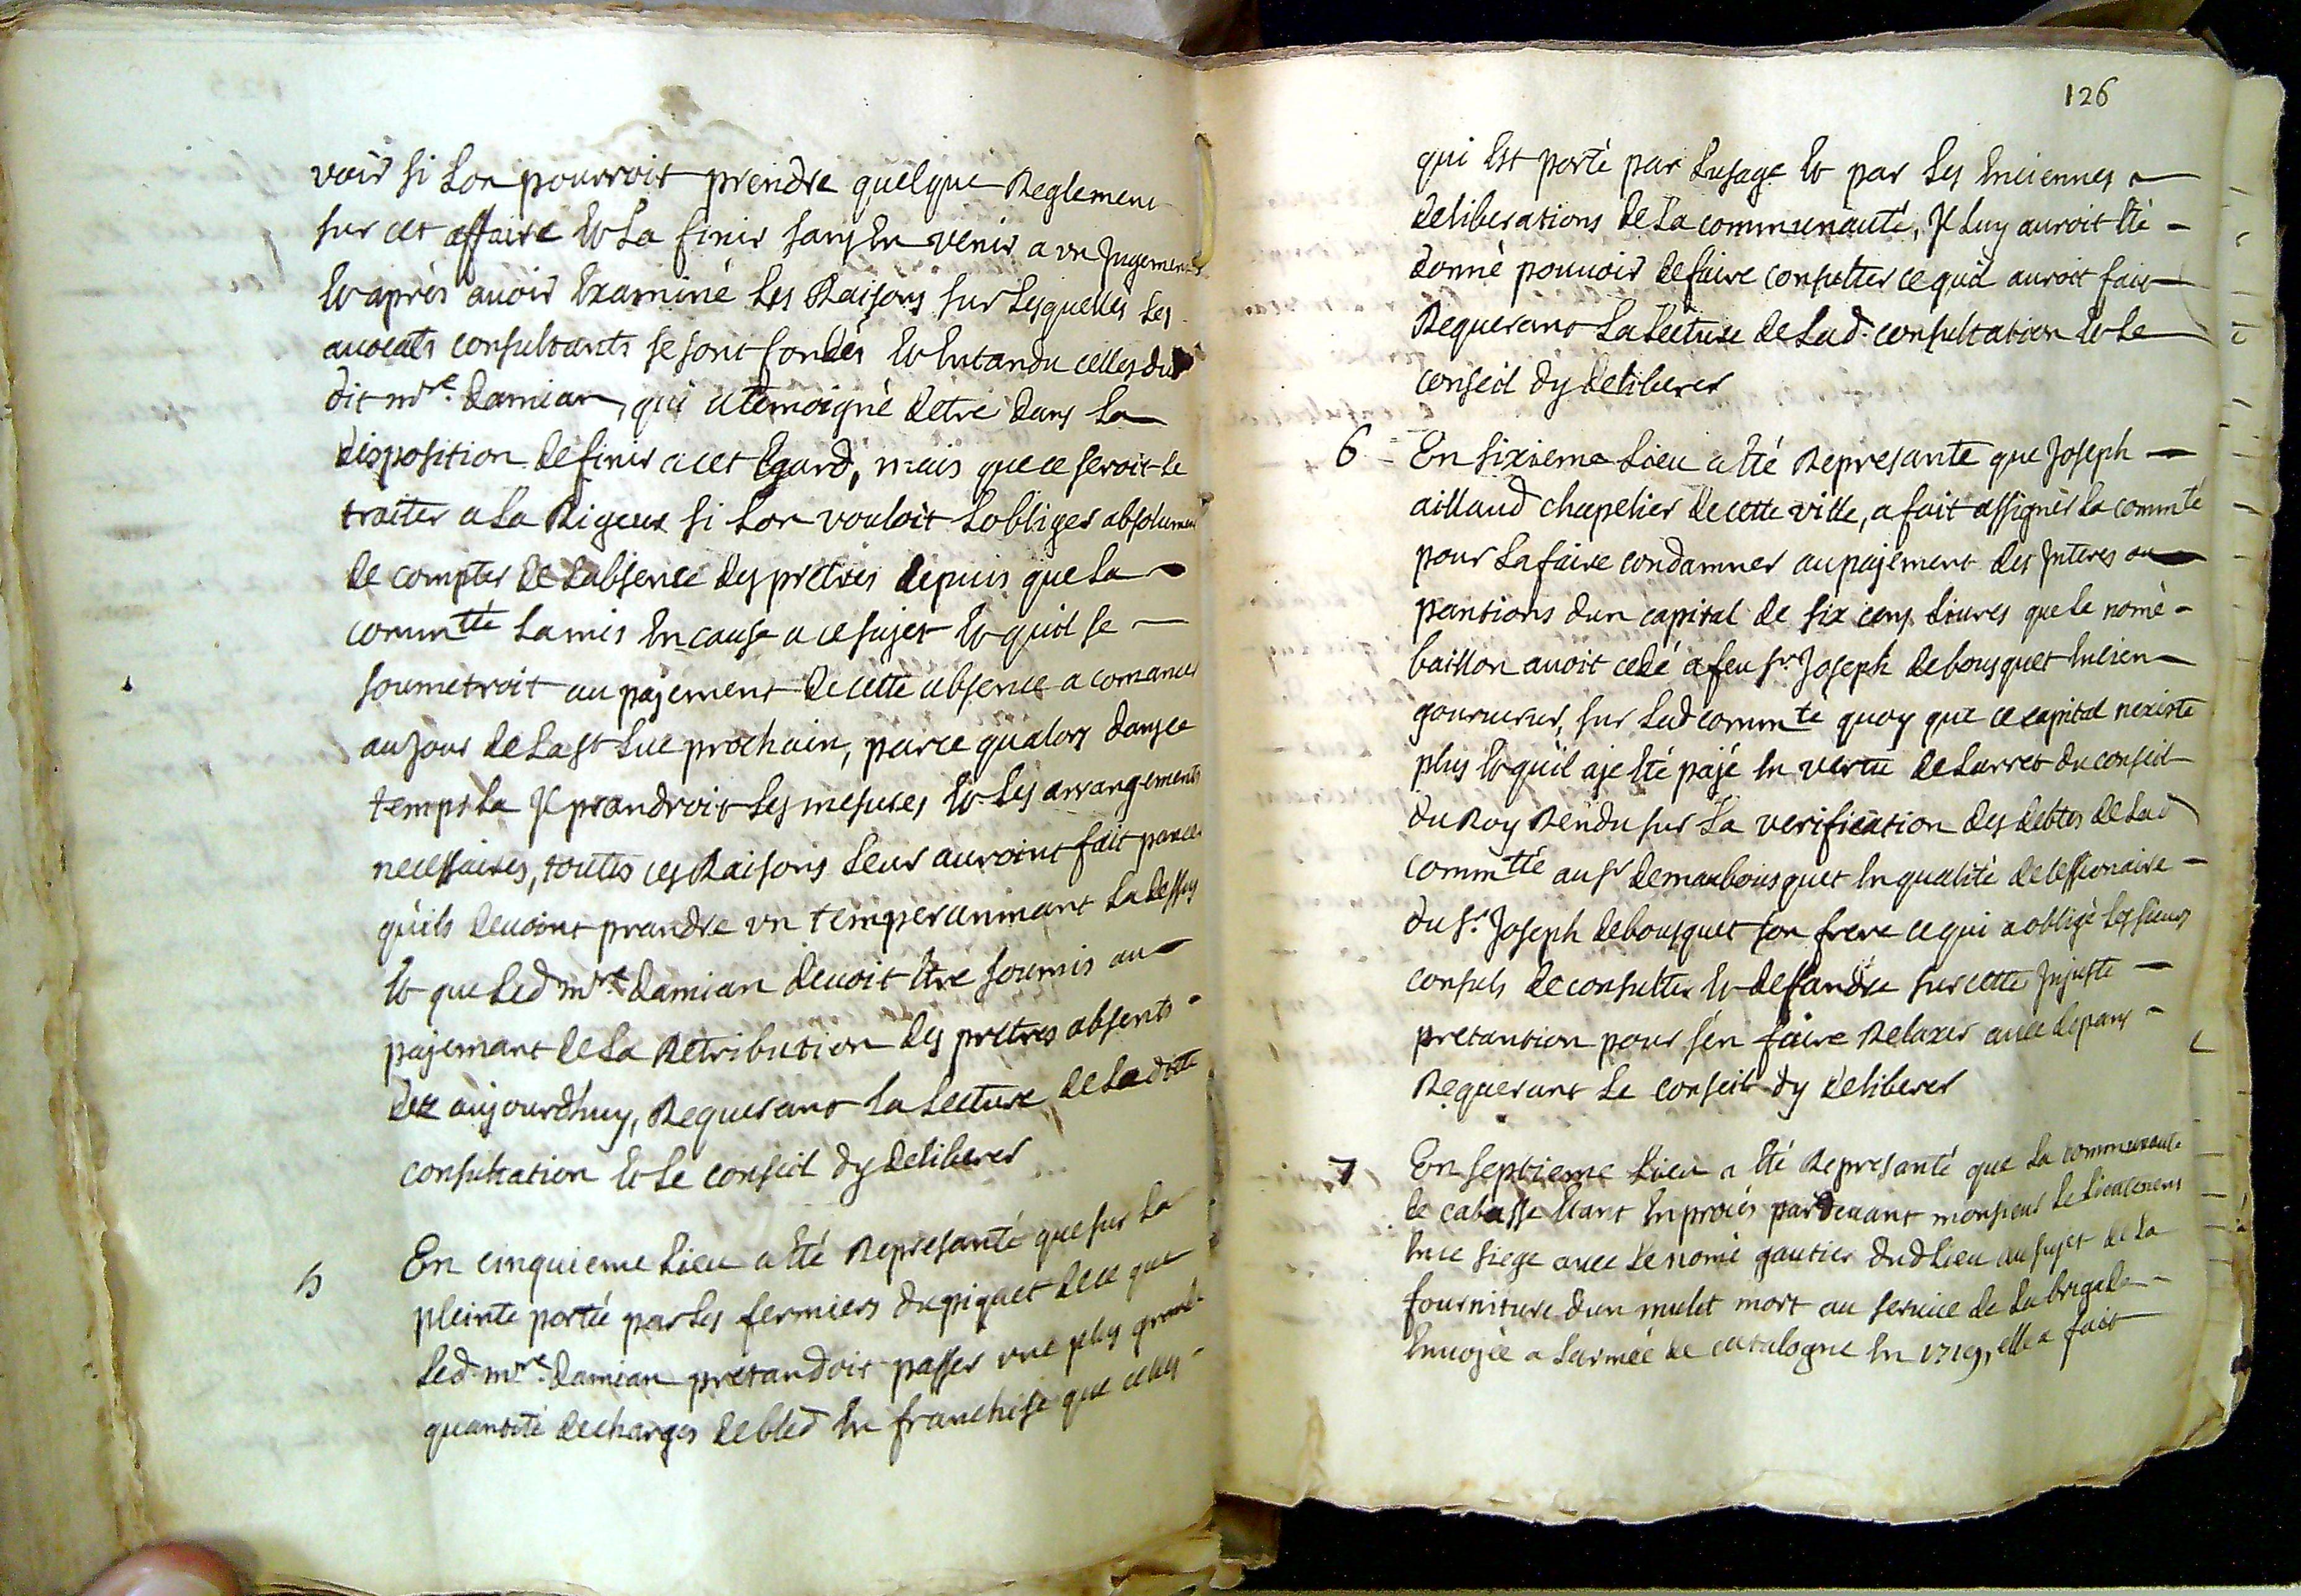 voir si lon pourroit prendre quelque Reglement
sur cet affaire et la finir sans en venir a un Jugement
et aprés auoir examiné les Raisons sur lesquelles les
auocats consultants se sont fondés et entandu celles du
dit mre. damian, qui a temoigné detre dans la
disposition de finir a cet egard, mais que ce seroit le
traiter a la Rigeur si lon vouloit lobliger absolument
de compter de labsence des pretres depuis que la
commtté la mis en cause a ce sujet et quil se
soumetroit au pajement de cette absence a comancer
au jour de la st luc prochain, parce qualors dans ce
temps la Il prandroit les mesures et les arrangements
necessaires, toutes ces Raisons leur auroint fait panser
quils deuoint prandre un temperamment la dessus
et que led mre damian deuoit etre soumis au
pajemant de la Retribution des pretres absents
dez aujourdhuy, Requerant la lecture de la ditte
consultation et le conseil dy deliberer
5 En cinquieme lieu a eté Represanté que sur la
pleinte portée par les fermiers du piquet de ce que
led. mre. damian pretandoit passer une plus grande
quantité de charges de bled en franchise que celles
126
qui est porté par lusage et par les enciennes
deliberations de la communauté, Il luy auroit eté
donné pouuoir de faire consulter ce quil auroit fait
Requerant la lecture de lad. consultation et le
conseil dy deliberer
6 En sixieme lieu a eté Represanté que Joseph
aillaud chapelier de cette ville, a fait assigner la commté
pour la faire condamner au pajement des Interes ou
pantions dun capital de six cens liures que le nomé
baillon auoit cedé a feu sr. Joseph debousquet encien
gouuerneur, sur lad commté quoy que ce capital nexiste
plus et quil aje eté pajé en vertu de larret du conseil
du Roy Rendu sur la verification des debtes de lad
commtté au sr demaubousquet en qualité de cessionaire
du sr. Joseph debousquet son frere ce qui a obligé les sieurs
consuls de consulter et deffandre sur cette Injuste
pretantion pour sen faire Relaxer auec depans
Requerant le conseil dy deliberer
7 En septieme lieu a eté Represanté que la communauté
de cabasse etant en procés pardeuant monsieur le lieutenent
en ce siege auec le nomé gautier dud lieu au sujet de la
fourniture dun mulet mort au seruice de la brigade
enuojée a larmée de catalogne en 1719, elle a fait